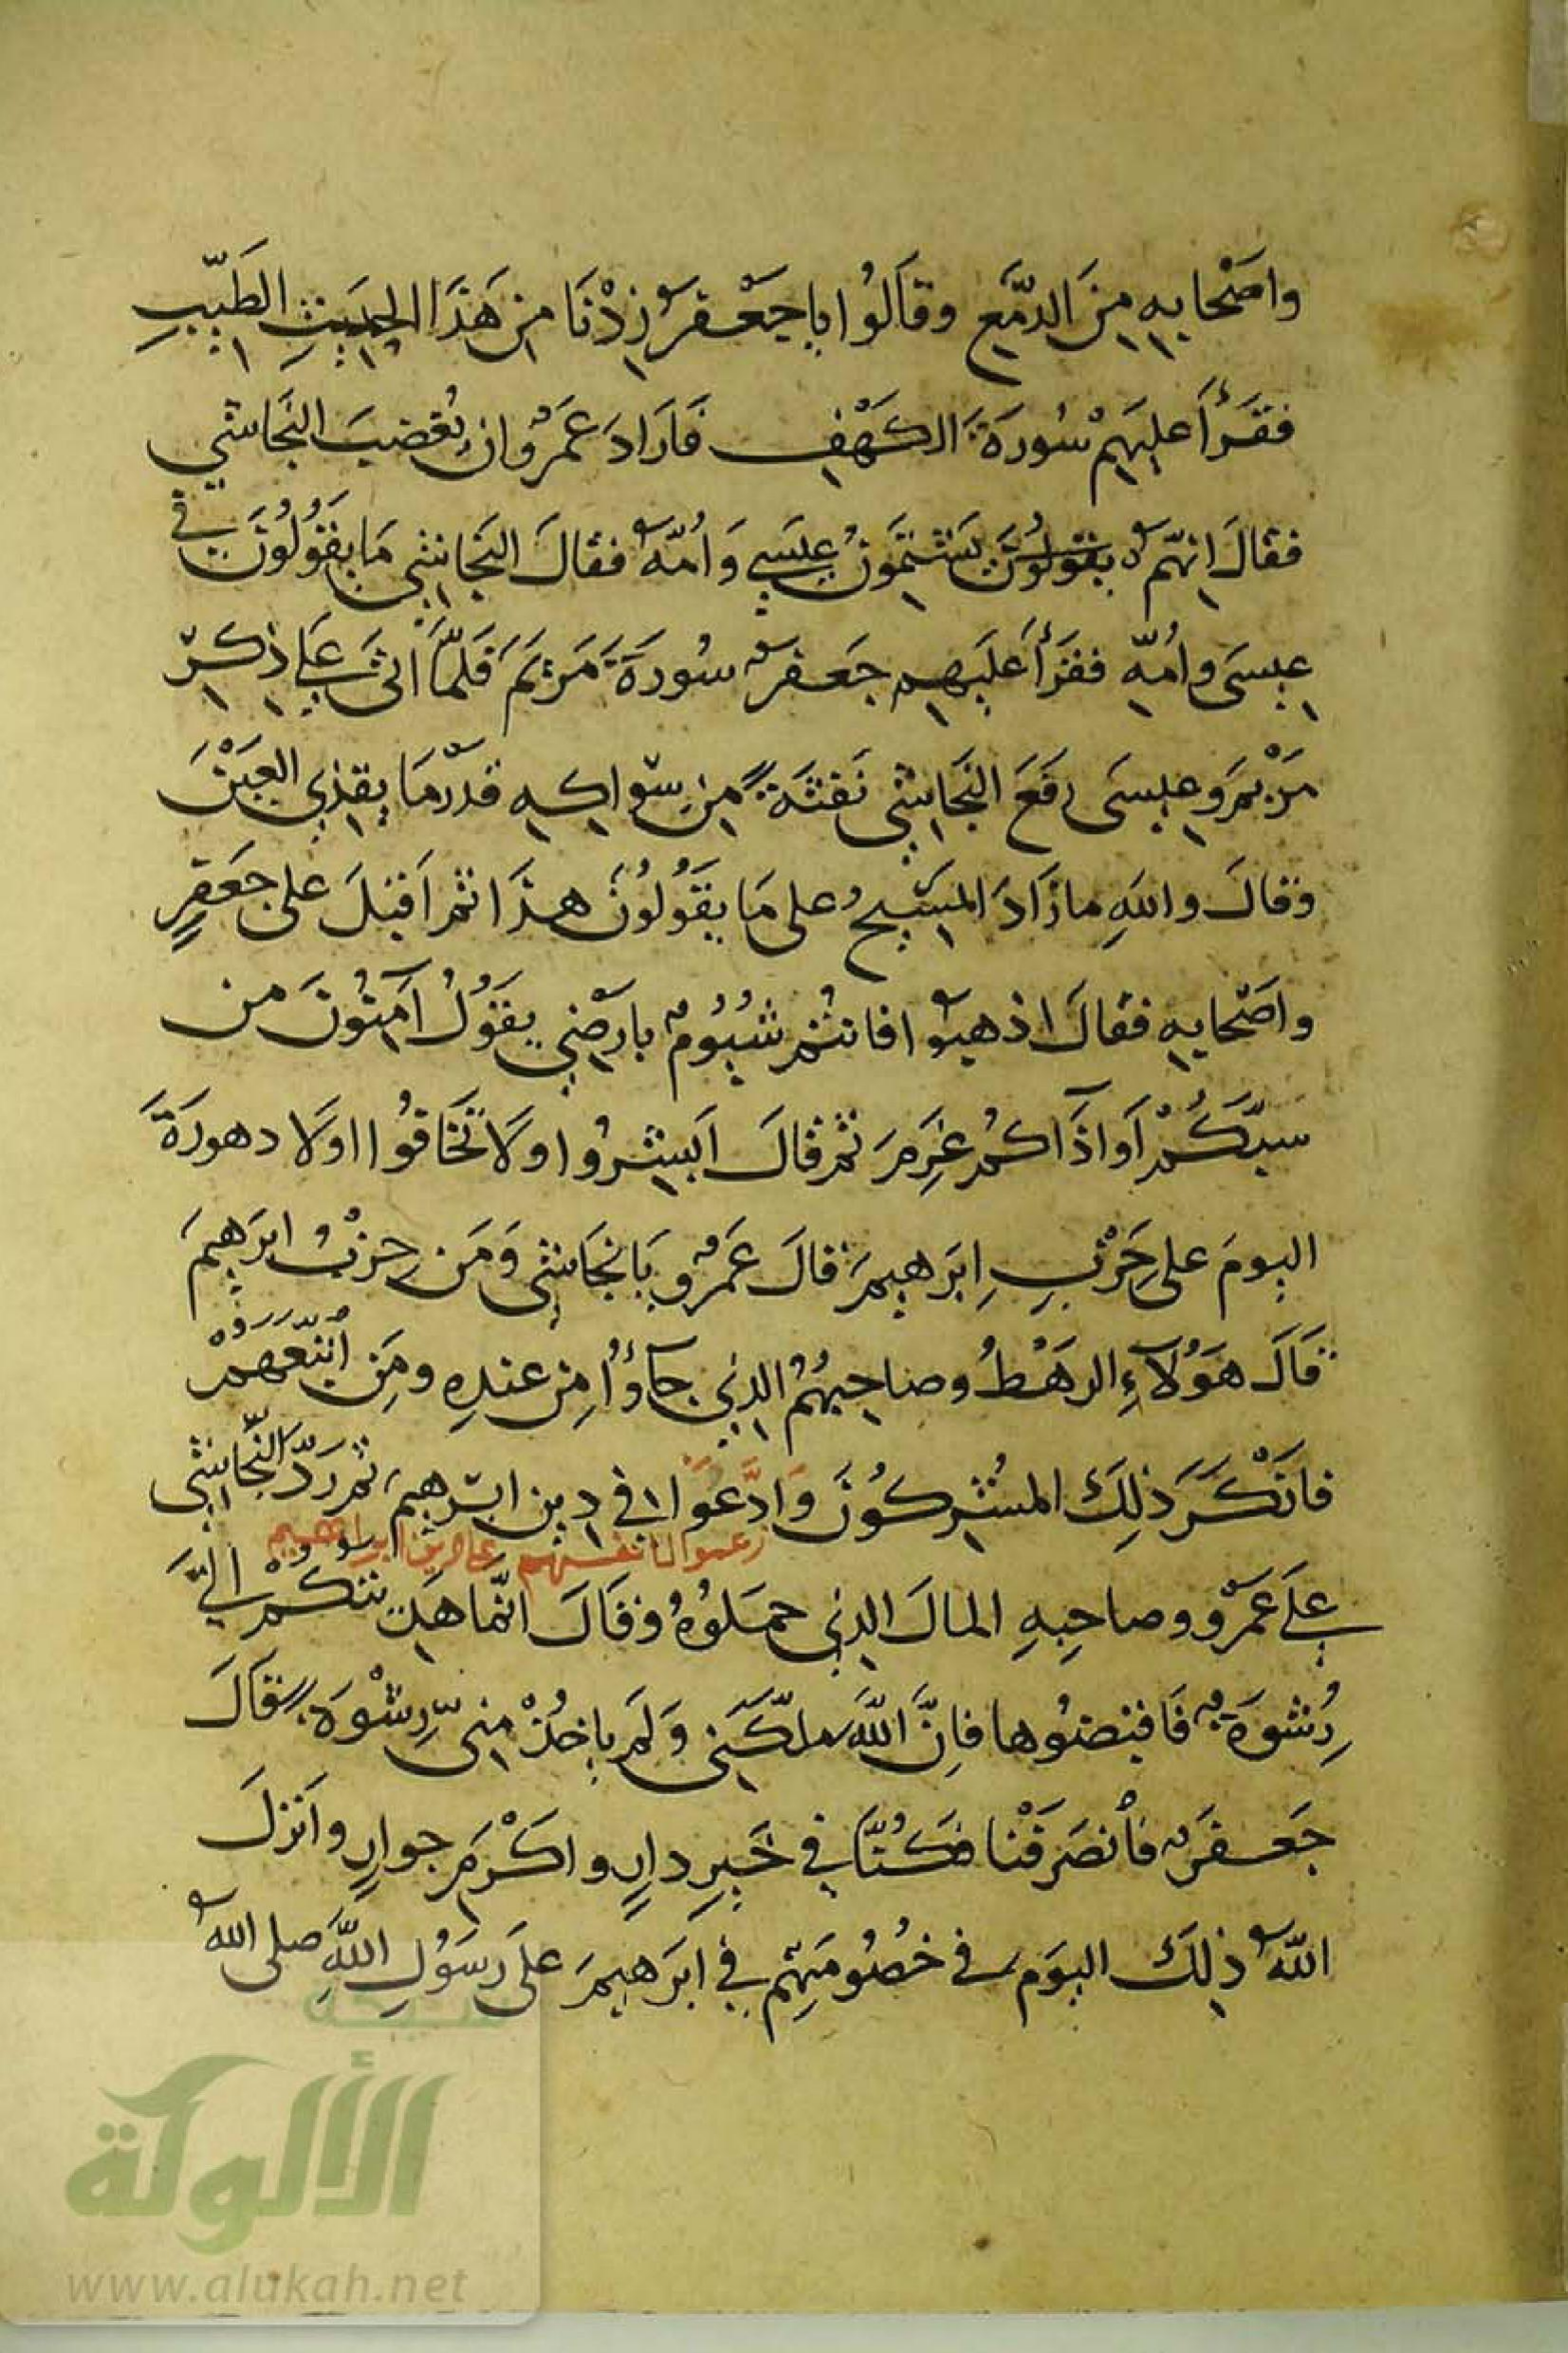 واَصْحابِهِ مِنَ الدَّمْعِ وقاَلُوا باجَعْفَرُ زِدْنَا مِن هَذَا الحَدِيثِ الطَيّبِ
فقَرَأَ عليهَمْ سُورَةَ الكَهْفِ فَارَادَ عَمْرٌو ان يُغضِبَ النَجَاشي
فقالَ اِنّهمْ يقولُونَ يَشتِمَونُ عِيسَي وَاُمّهُ فقالَ النَجاشِي مَا يقَوُلُونَ في
عِيسَى واُمّهِ فقرَأَ عَلَيهِم جَعفرٌ سُورَةَ مَرْيَمَ فَلَمّا اتَى عَلَي ذِكرِ
مَرْيمَ وعِيسَى رفَعَ النَجَاشِي نَفثَةً مِن سِوَاكِهِ قدرَمَا يقذِي العَيْنَ
وقالَ واللهِ مازَادَ المَسِيحُ على مَا يقَوُلُونَ هذَا ثمراَقبَلَ على جَعَفرٍ
واَصْحابِهِ فقالَ اذهبُوا فانتُم شُيُومٌ بارضِي يقَوُلُ آمِنُونَ من
سبّكُمْ اَو آذَاكمُ غَرِمَ ثمرقالَ اَبشِرُوا ولَا تَخَافُوا اولَا دهورَةَ
اليومَ على حِزْبِ اِبرَهيمَ قالَ عَمْرٌو يَا نجَاشي وَمَن حِزبُ ابرَهِيمَ
قَالَ هَوُلآءِ الرهَطُ وصَاحِبُهُم الذِي جآؤُا مِن عندِهِ ومَنِ اتّبَعَهُمْ
فانَكَرَ ذلِكَ المُشرِكُونَ وَادَّعَوَا في دِينِ ابرَهيمَ ثمرَدّ النَّجَاشِي
زعموا لانفسهم علم دين ابراهيم
علَي عَمْرٍو وصاحِبهِ المالَ الذِي حمَلوُهُ وقَالَ انّما هَدِيتكُمُ الَيّ
رُشوَةٌ فَاقبِضوُها فاِنَّ اللَّهَ ملّكَنِي وَلمَ ياخُذْ مِنّي رِشْوَةً قالَ
جَعفَرٌ فانصَرَفنا فكُنَّا في خَيرِ دارٍ واكْرَمِ جوارٍ وانَزلَ
اللَّهُ ذلِكَ اليوَم في خصُومَتِهم في ابرَهيمَ علَى رسَوُلِ اللَّهِ صلى اللهُ
شبكة
الألوكة
www.alukah.net